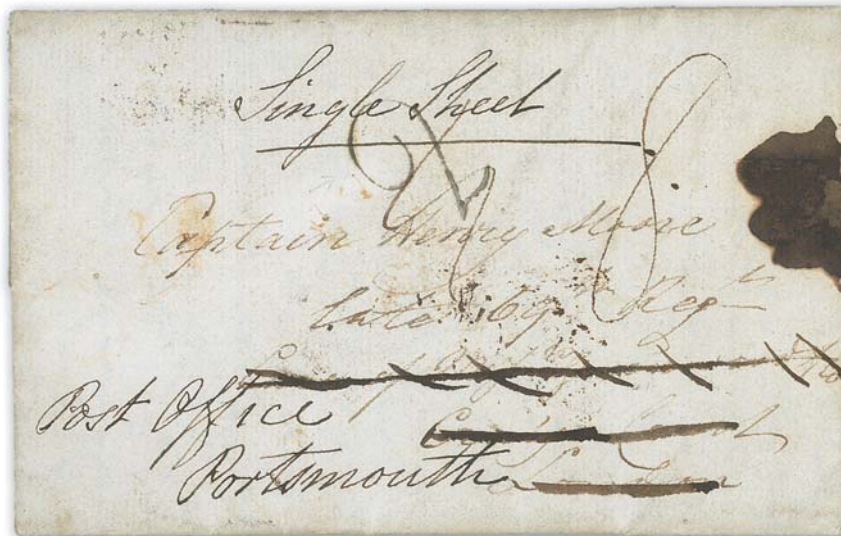 Single Sheet
8
Captain Henry Moore
late 69th Regt
Post Office
Portsmouth London